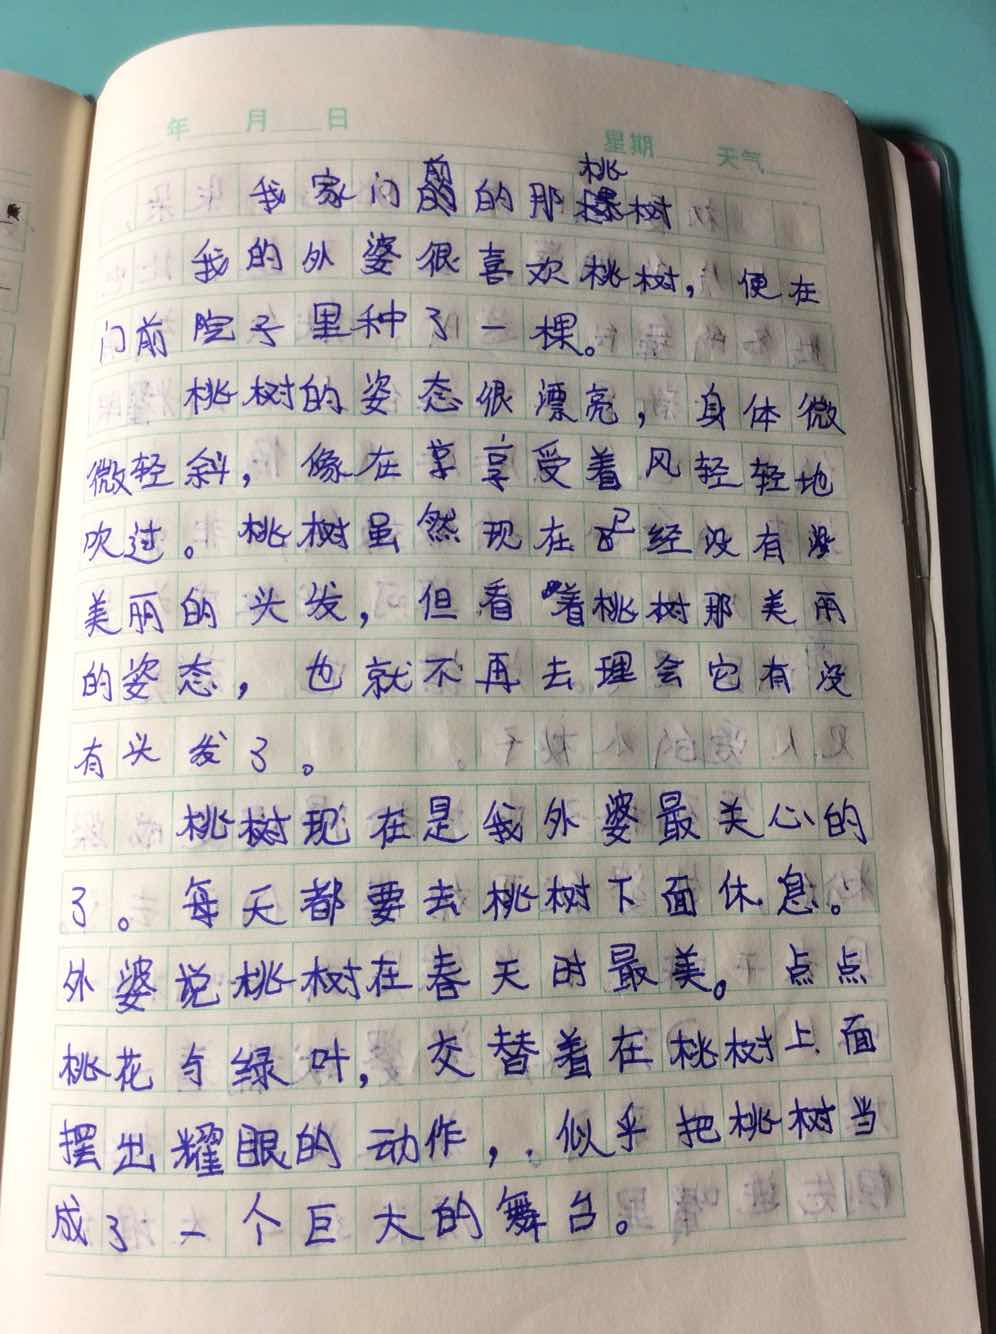 年 月 日
星期 天气
我家门前的那桃树
我的外婆很喜欢桃树，便在
门前院子里种了一棵。
桃树的姿态很漂亮，身体微
微轻斜，像在享享受着风轻轻地
吹过。桃树虽然现在已经没有
美丽的头发，但看着桃树那美丽
的姿态，也就不再去理会它有没
有头发了。
桃树现在是我外婆最关心的
了。每天都要去桃树下面休息。
外婆说桃树在春天时最美。点点
桃花与绿叶，交替着在桃树上面
摆出耀眼的动作，似乎把桃树当
成了一个巨大的舞台。